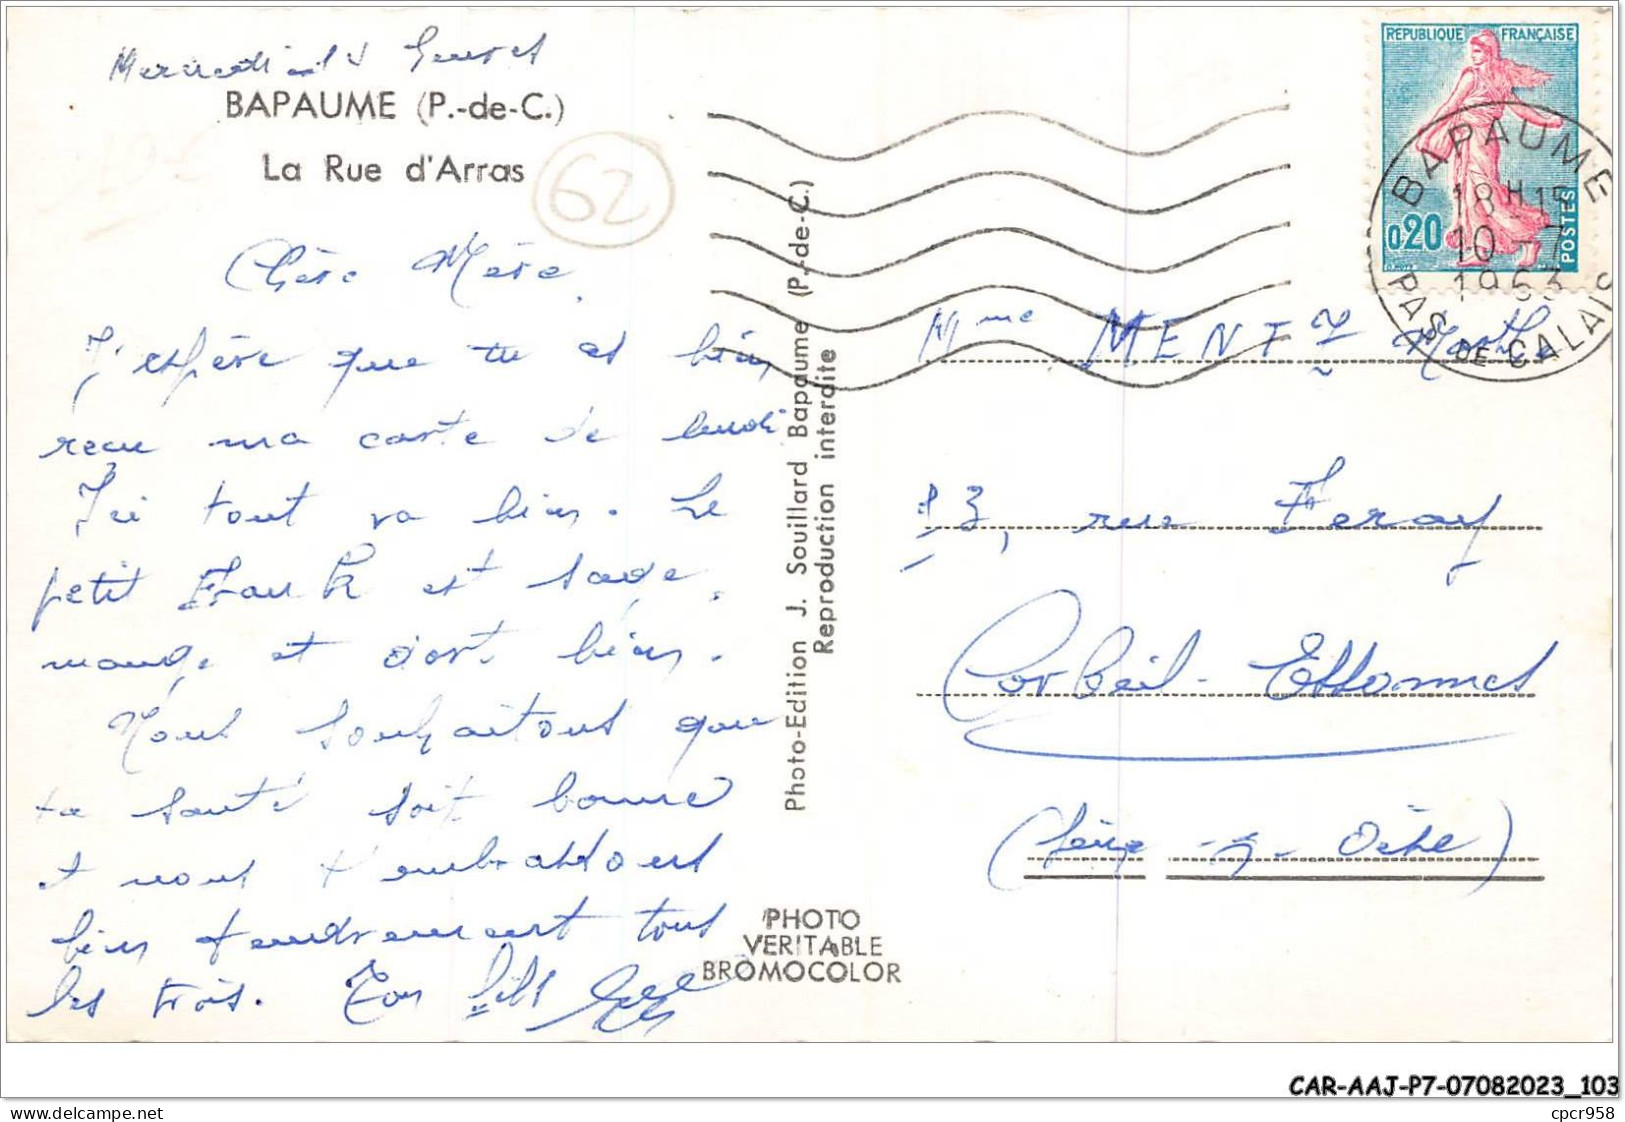 Mercredi
BAPAUME (P.-de-C.)
La Rue d'Arras
62
Chère Mère,
J'espère que tu as bien
reçu ma carte de lundi
Ici tout va bien. Le
petit Franck est sage,
mange et dort bien.
Nous souhaitons que
ta santé soit bonne
et nous t'embrassons
bien tendrement tous
les trois. Ton fils
Photo-Edition J. Souillard Bapaume (P.-de-C.)
Reproduction interdite
PHOTO
VERITABLE
BROMOCOLOR
REPUBLIQUE FRANÇAISE
0,20
POSTES
BAPAUME
18H15
10-7
1963
PAS DE CALAIS
Mme MENEZ Marthe
13, rue Feray
Corbeil-Essonnes
(Seine-&-Oise)
CAR-AAJ-P7-07082023_103
The world's largest marketplace for collectors
cpcr958